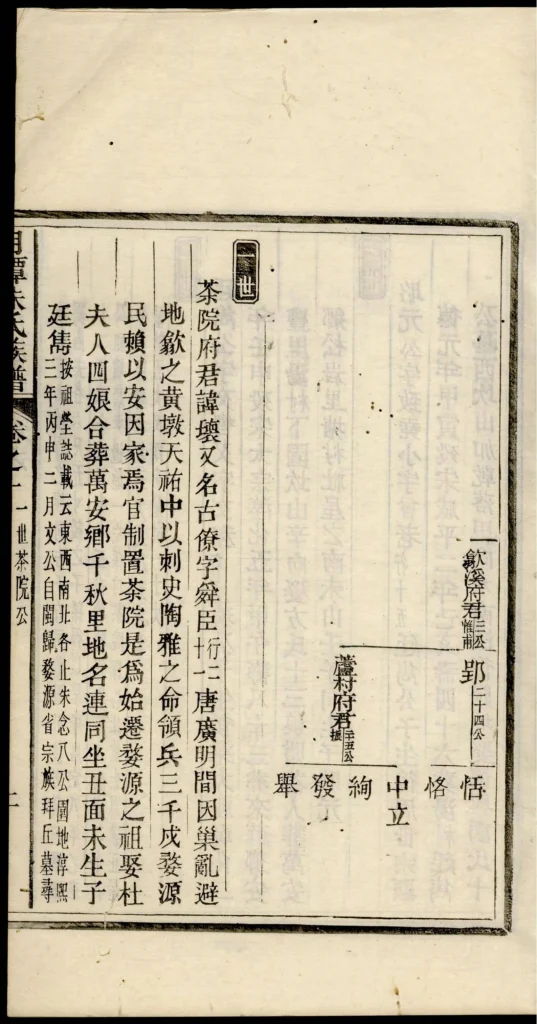 歙溪府君三公惟甫
郢二十四公
蘆村府君二十五公振
恬
恪
中立
絢
發
舉
一世
茶院府君諱瓌又名古僚字舜臣行二十一唐廣明間因巢亂避
地歙之黃墩天祐中以刺史陶雅之命領兵三千戍婺源
民賴以安因家焉官制置茶院是爲始遷婺源之祖娶杜
夫人四娘合葬萬安鄉千秋里地名連同坐丑面未生子
廷雋按祖塋誌載云東西南北各止朱念八公園地淳熙
三年丙申二月文公自閩歸婺源省宗族拜丘墓尋
月潭朱氏族譜 卷之一 一世茶院公 二